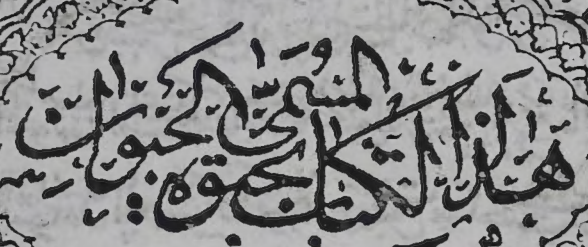 هذا الكتاب المسمى بحيوة الحيوان